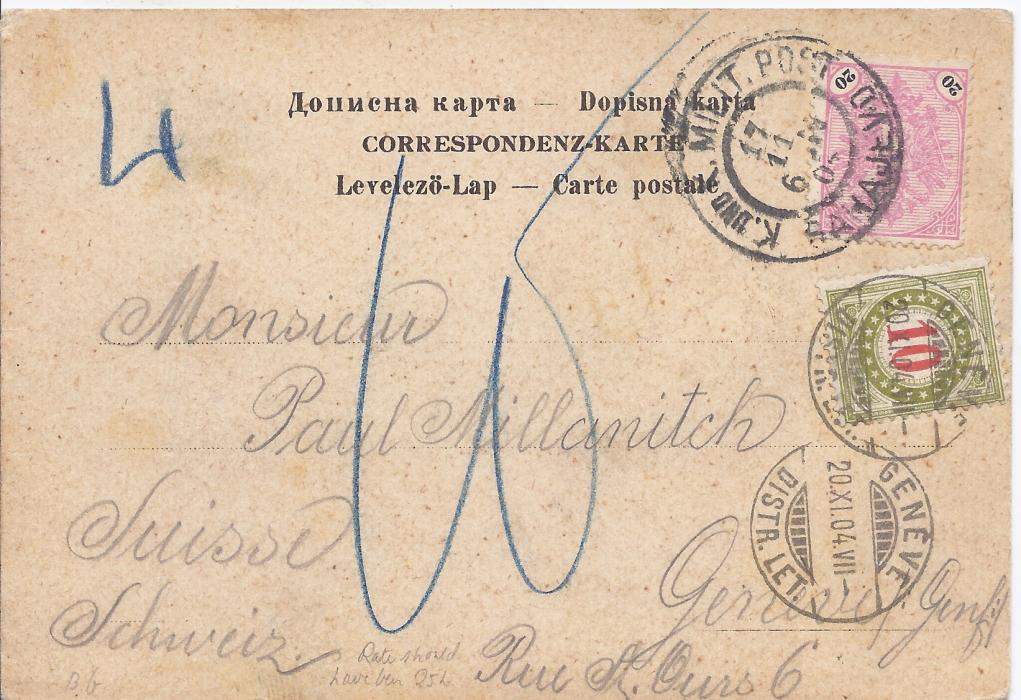 Дописна карта — Dopisna karta
CORRESPONDENZ-KARTE
Levelező-Lap — Carte postale
K. UND K. MILIT. POST
BANJALUKA
17
11
6
04
20 20
10
Monsieur
Paul Millanitch
Suisse.
Schweiz.
Genève (Genf)
Rue St. Ours 6
GENÈVE
20.XI.04.VII-
DISTR. LET.
Rate should
have been 25h